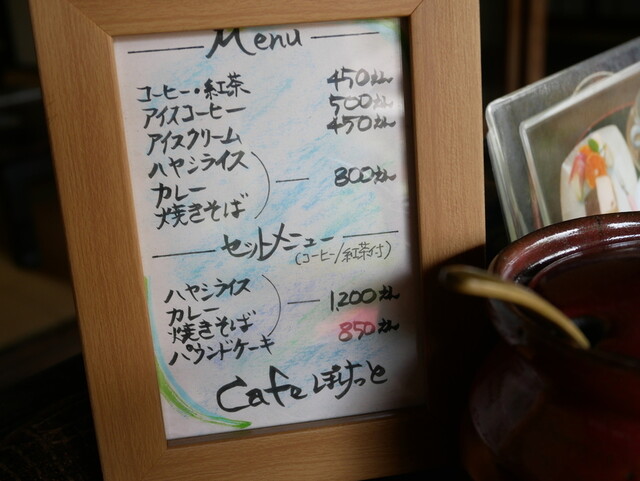 Menu
コーヒー・紅茶 450えん
アイスコーヒー 500えん
アイスクリーム 450えん
ハヤシライス
カレー 800えん
焼きそば
セットメニュー
(コーヒー/紅茶付)
ハヤシライス
カレー 1200えん
焼きそば
パウンドケーキ 850えん
Cafe ぽけっと